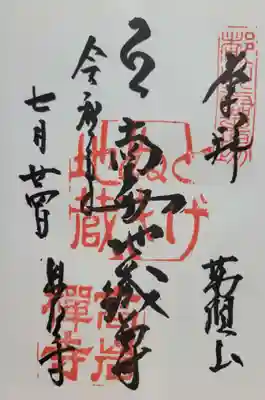 奉拝
萬頂山
南無地蔵尊
とげぬき
地蔵
高岩
禪寺
七月廿四日
高岩寺